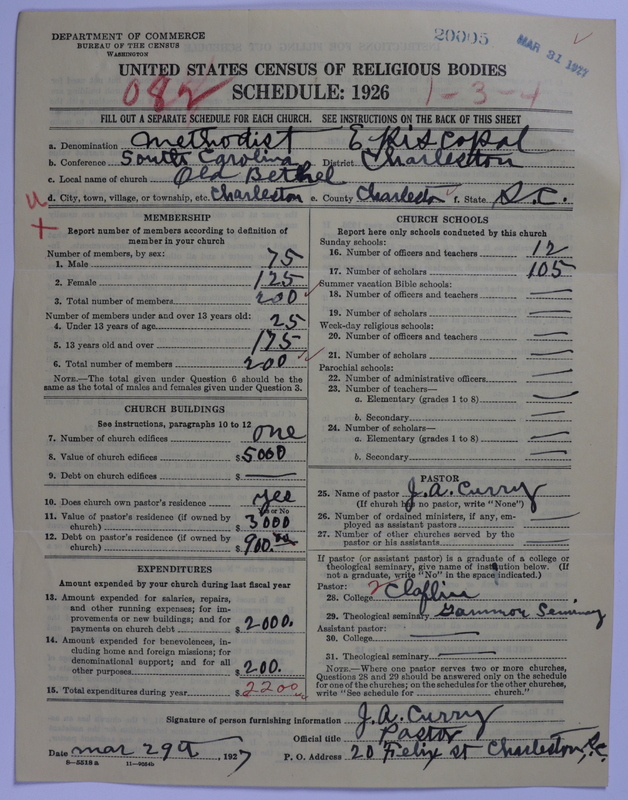 DEPARTMENT OF COMMERCE
BUREAU OF THE CENSUS
WASHINGTON
20005
MAR 31 1927
UNITED STATES CENSUS OF RELIGIOUS BODIES
SCHEDULE: 1926
082
1-3-4
FILL OUT A SEPARATE SCHEDULE FOR EACH CHURCH. SEE INSTRUCTIONS ON THE BACK OF THIS SHEET
a. Denomination Methodist Episcopal
b. Conference South Carolina District Charleston
c. Local name of church Old Bethel
d. City, town, village, or township, etc. Charleston e. County Charleston f. State S.C.
MEMBERSHIP
Report number of members according to definition of
member in your church
Number of members, by sex:
1. Male 75
2. Female 125
3. Total number of members 200
Number of members under and over 13 years old:
4. Under 13 years of age 25
5. 13 years old and over 175
6. Total number of members 200
NOTE.—The total given under Question 6 should be
same as the total of males and females given under Question 3.
CHURCH BUILDINGS
See instructions, paragraphs 10 to 12
7. Number of church edifices one
8. Value of church edifices $ 5000
9. Debt on church edifices $ —
10. Does church own pastor's residence yes
Yes or No
11. Value of pastor's residence (if owned by
church) $ 3000
12. Debt on pastor's residence (if owned by
church) $ 900.00
EXPENDITURES
Amount expended by your church during last fiscal year
13. Amount expended for salaries, repairs,
and other running expenses; for im-
provements or new buildings; and for
payments on church debt $ 2000.
14. Amount expended for benevolences, in-
cluding home and foreign missions; for
denominational support; and for all
other purposes $ 200.
15. Total expenditures during year $ 2200
CHURCH SCHOOLS
Report here only schools conducted by this church
Sunday schools:
16. Number of officers and teachers 12
17. Number of scholars 105
Summer vacation Bible schools:
18. Number of officers and teachers —
19. Number of scholars —
Week-day religious schools:
20. Number of officers and teachers —
21. Number of scholars —
Parochial schools:
22. Number of administrative officers —
23. Number of teachers—
a. Elementary (grades 1 to 8) —
b. Secondary —
24. Number of scholars—
a. Elementary (grades 1 to 8) —
b. Secondary —
PASTOR
25. Name of pastor J.A. Curry
(If church has no pastor, write "None")
26. Number of ordained ministers, if any, em-
ployed as assistant pastors —
27. Number of other churches served by the
pastor or his assistants —
If pastor (or assistant pastor) is a graduate of a college or
theological seminary, give name of institution below. (If
not a graduate, write "No" in the space indicated.)
Pastor:
28. College 2 Claflin
29. Theological seminary Gammon Seminary
Assistant pastor:
30. College —
31. Theological seminary —
NOTE.—Where one pastor serves two or more churches,
Questions 28 and 29 should be answered only on the schedule
for one of the churches; on the schedules for the other churches,
write "See schedule for ........ church."
Signature of person furnishing information J.A. Curry
Official title Pastor
Date mar 29th, 1927 P. O. Address 20 Felix st Charleston, S.C.
8—5518a 11—9264b